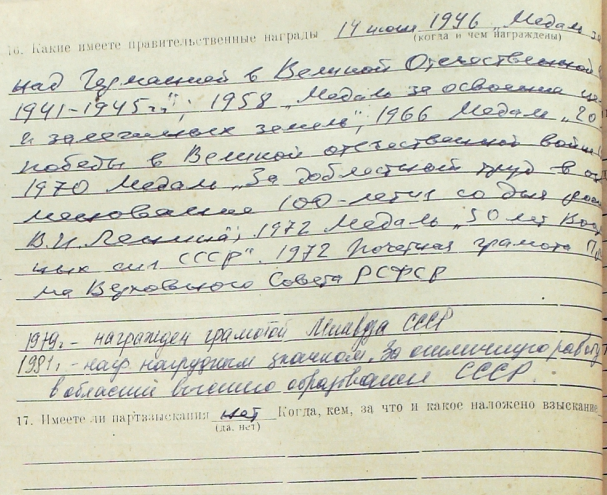 16. Какие имеете правительственные награды 14 июня 1946 „Медаль за
(когда и чем награждены)
над Германией в Великой Отечественной в
1941-1945гг"; 1958 „Медаль за освоение це
и залежных земель"; 1966 Медаль „20
победы в Великой отечественной войн
1970 Медаль „За доблестный труд в оз
менование 100-летия со дня рож
В.И. Ленина"; 1972 Медаль „50 лет Воор
ных сил СССР". 1972 Почетная грамота Пр
ма Верховного Совета РСФСР
1979г. - награжден грамотой Минвуза СССР
1981г. - нагр нагрудным значком „За отличную работу
в области высшего образования СССР.
17. Имеете ли партвзыскания нет Когда, кем, за что и какое наложено взыскание
(да, нет)